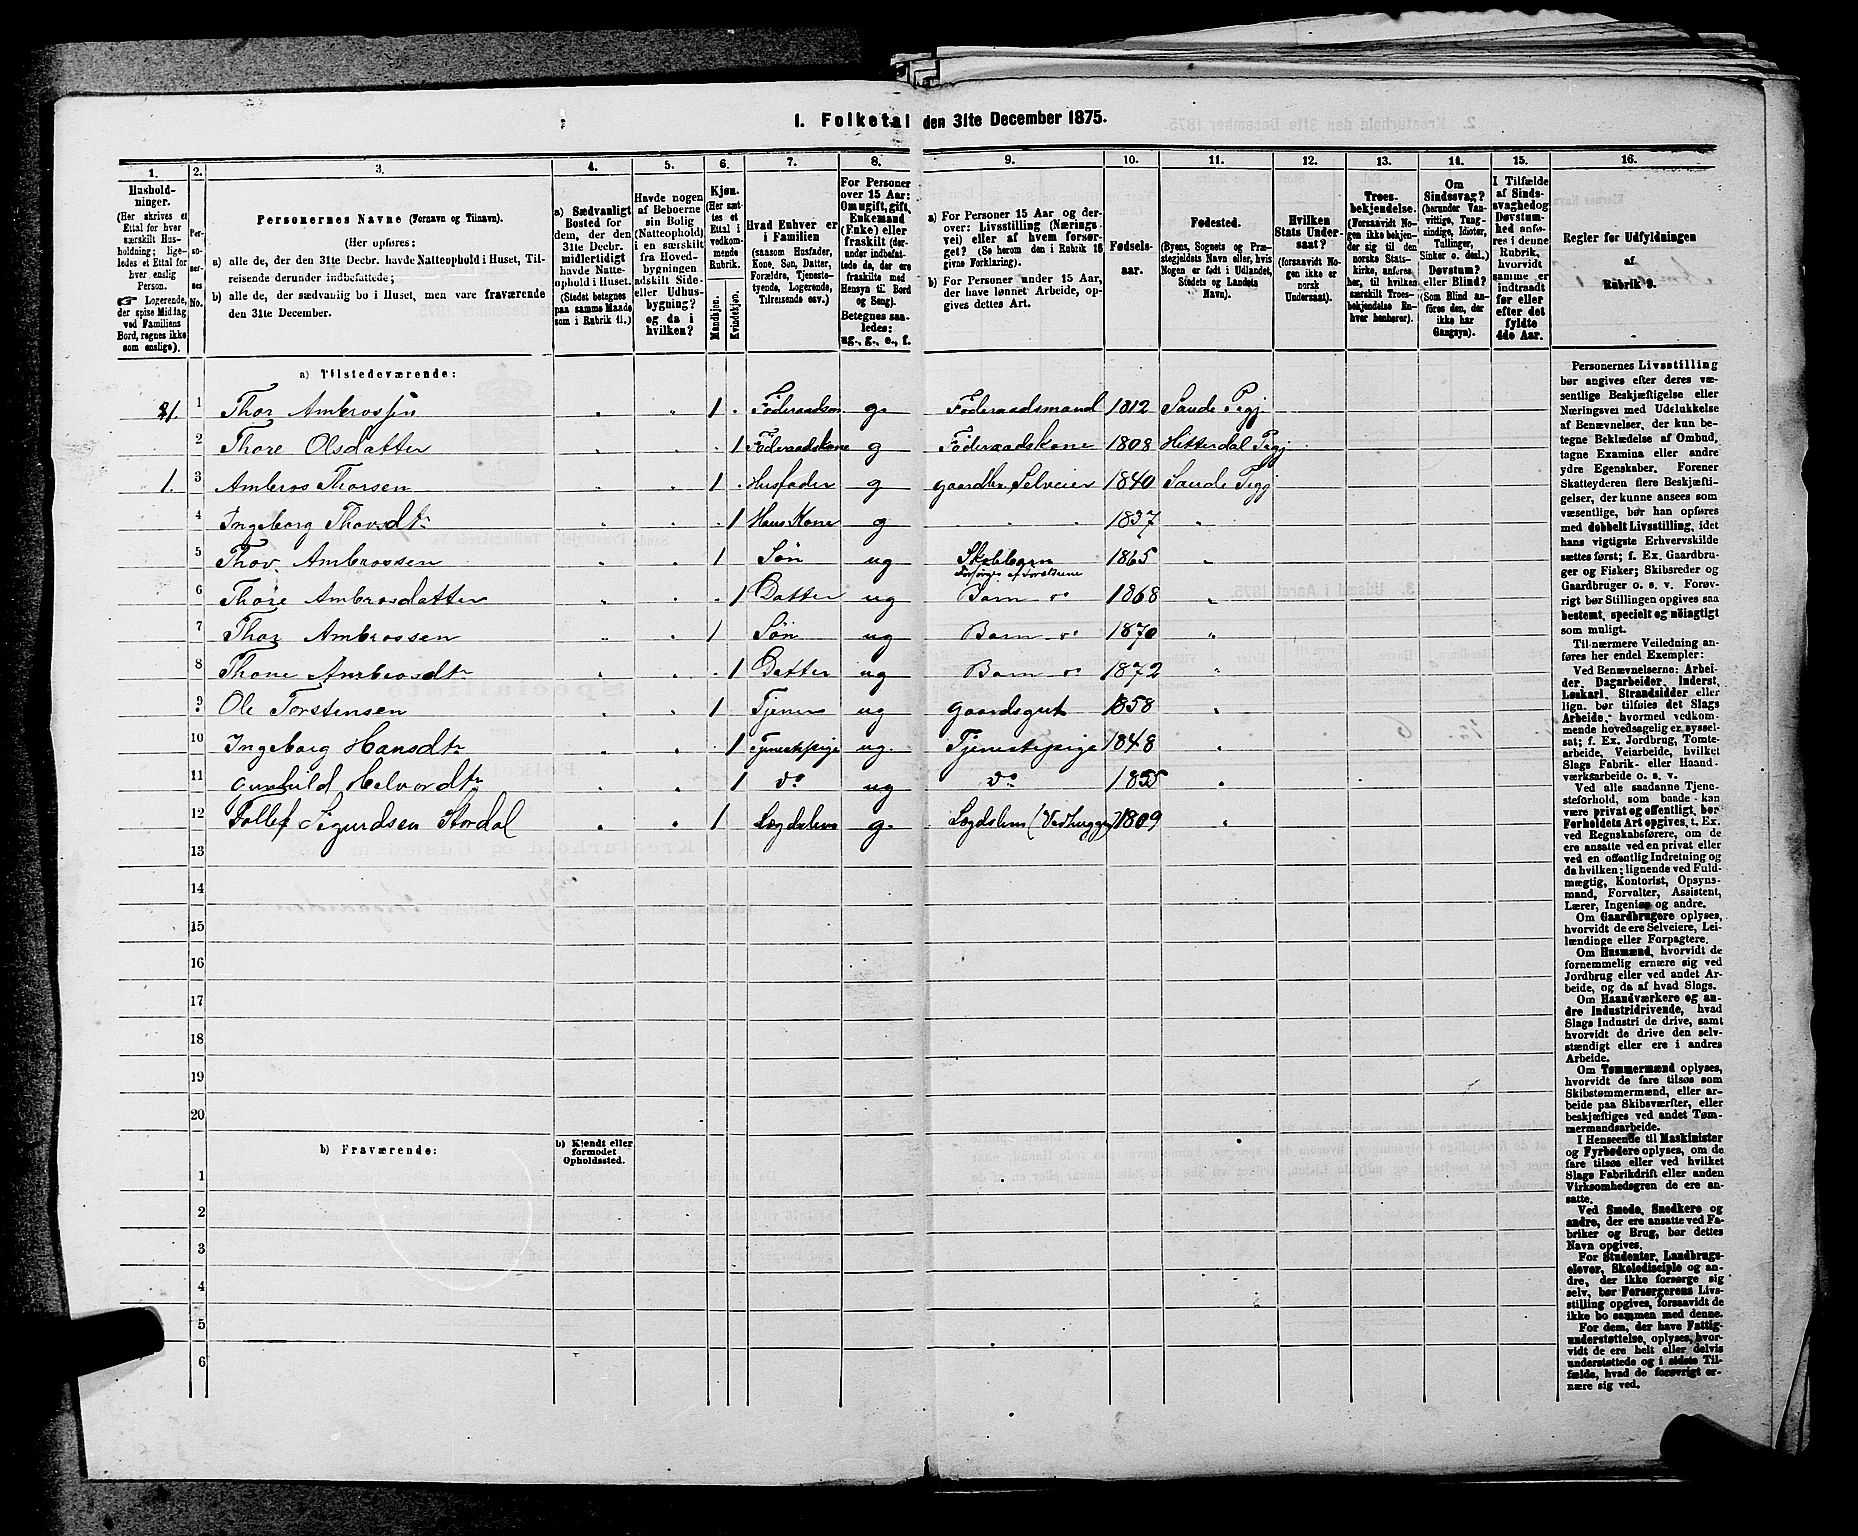 1. Folketal den 31te December 1875.
1. 2. 3. 4. 5. 6. 7. 8. 9. 10. 11. 12. 13. 14. 15. 16.
Hushold-
ninger.
(Her skrives et
Ettal for hver
særskilt Hus-
holdning; lige-
ledes et Ettal for
hver enslig
Person.
☞ Logerende,
der spise Middag
ved Familiens
Bord, regnes ikke
som enslige).
Per-
so-
ner-
nes
No.
Personernes Navne (Fornavn og Tilnavn).
(Her opføres:
a) alle de, der den 31te Decbr. havde Natteophold i Huset, Til-
reisende derunder indbefattede;
b) alle de, der sædvanlig bo i Huset, men vare fraværende
den 31te December.
a) Sædvanligt
Bosted for
dem, der den
31te Decbr.
midlertidigt
havde Natte-
ophold i Huset.
(Stedet betegnes
paa samme Maade
som i Rubrik 11.)
Havde nogen
af Beboerne
sin Bolig
(Natteophold)
i en særskilt
fra Hoved-
bygningen
adskilt Side-
eller Udhus-
bygning?
og da i
hvilken?
Kjøn.
(Her sæt-
tes et
Ettal i
vedkom-
mende
Rubrik.
Mandkjøn.
Kvindekjøn.
Hvad Enhver er
i Familien
(saasom Husfader,
Kone, Søn, Datter,
Forældre, Tjeneste-
tyende, Logerende,
Tilreisende osv.)
For Personer
over 15 Aar:
Om ugift, gift,
Enkemand
(Enke) eller
fraskilt (der-
under indbefat-
tede da, der ere
fraskilte med
Hensyn til Bord
og Seng).
Betegnes saa-
ledes:
ug., g., e., f.
a) For Personer 15 Aar og der-
over: Livsstilling (Nærings-
vei) eller af hvem forsør-
get? (Se herom den i Rubrik 16
givne Forklaring).
b) For Personer under 15 Aar,
der have lønnet Arbeide, op-
gives dettes Art.
Fødsels-
aar.
Fødested.
(Byens, Sognets og Præ-
stegjeldets Navn eller, hvis
Nogen er født i Udlandet,
Stedets og Landets
Navn).
Hvilken
Stats Under-
saat?
(forsaavidt No-
gen ikke er
norsk
Undersaat).
Troes-
bekjendelse.
(Forsaavidt No-
gen ikke bekjen-
der sig til den
norske Stats-
kirke, anføres
her, til hvilken
særskilt Troes-
bekjendelse En-
hver henhører).
Om
Sindssvag?
(herunder Van-
vittige, Tung-
sindige, Idioter,
Tullinger,
Sinker o. desl.)
Døvstum?
eller Blind?
(Som Blind an-
føres den, der
ikke har
Gangsyn).
I Tilfælde
af Sinds-
svaghed og
Døvstum-
hed anfø-
res i denne
Rubrik,
hvorvidt
samme er
indtraadt
før eller
efter det
fyldte
4de Aar.
Regler for Udfyldningen
af
Rubrik 9.
a) Tilstedeværende:
1 Thor 1 g. Føderaadsmand 1812 Saude Pgj
2 Thore Olsdatter 1 Føderaadskone g Føderaadskone 1808 Hitterdal Pgj
1. 3 Ambros Thorsen 1 Husfader g gaardbr. Selveier 1840 Saude Pgj
4 Ingeborg Thorsdtr 1 Hans Kone g 1837 "
5 Thov Ambrossen 1 Søn ug Skolebarn 1865 "
Forsørges af Foreldrene
6 Thore Ambrosdatter 1 Datter ug Barn do 1868 "
7 Thor Ambrossen 1 Søn ug Barn do 1870 "
8 Thone Ambrosdtr 1 Datter ug Barn do 1872 "
9 Ole Torstensen 1 Tjener ug Gaardsgut 1858 "
10 Ingeborg Hansdtr 1 Tjenestepige ug. Tjenestepige 1848 "
11 Gunhild Helvordtr 1 do ug do 1855 "
12 Tollef Sigurdsen Stordal 1 Lægdslem g. Lægdslem (Vedhugger) 1809 "
13
14
15
16
17
18
19
20
b) Fraværende:
b) Kjendt eller
formodet
Opholdssted.
1
2
3
4
5
6
Personernes Livsstilling
bør angives efter deres væ-
sentlige Beskjæftigelse eller
Næringsvei med Udelukkelse
af Benævnelser, der kun be-
tegne Beklædelse af Ombud,
tagne Examina eller andre
ydre Egenskaber. Forener
Skatteyderen flere Beskjæfti-
gelser, der kunne ansees som
væsentlige, bør han opføres
med dobbelt Livsstilling, idet
hans vigtigste Erhvervskilde
sættes først; f. Ex. Gaardbru-
ger og Fisker; Skibsreder og
Gaardbruger o. s. v. Forøv-
rigt bør Stillingen opgives saa
bestemt, specielt og nøiagtigt
som muligt.
Til nærmere Veiledning an-
føres her endel Exempler:
Ved Benævnelserne: Arbei-
der, Dagarbeider, Inderst,
Løskarl, Strandsidder eller
lign. bør tilføies det Slags
Arbeide, hvormed vedkom-
mende hovedsagelig er syssel-
sat; f. Ex. Jordbrug, Tomte-
arbeide, Veiarbeide, hvilket
Slags Fabrik- eller Haand-
værksarbeide o. s. v.
Ved alle saadanne Tjene-
steforhold, som baade kan
være privat og offentligt, bør
Forholdets Art opgives, t. Ex.
ved Regnskabsførere, om de
ere ansatte ved en privat eller
ved en offentlig Indretning og
da hvilken; lignende ved Fuld-
mægtig, Kontorist, Opsyns-
mand, Forvalter, Assistent,
Lærer, Ingeniør og andre.
Om Gaardbrugere oplyses,
hvorvidt de ere Selveiere, Lei-
lændinge eller Forpagtere.
Om Husmænd, hvorvidt de
fornemmelig ernære sig ved
Jordbrug eller ved andet Ar-
beide, og da af hvad Slags.
Om Haandværkere og an-
dre Industridrivende, hvad
Slags Industri de drive, samt
hvorvidt de drive den selv-
stændigt eller ere i andres
Arbeide.
Om Tømmermænd oplyses,
hvorvidt de fare tilsøs som
Skibstømmermænd, eller ar-
beide paa Skibsværfter, eller
beskjæftiges ved andet Tøm-
mermandsarbeide.
I Henseende til Maskinister
og Fyrbødere oplyses, om de
fare tilsøs eller ved hvilket
Slags Fabrikdrift eller anden
Virksomhedsgren de ere an-
satte.
Ved Smede, Snedkere og
andre, der ere ansatte ved Fa-
briker og Brug, bør dettes
Navn opgives.
For Studenter, Landbrugs-
elever, Skoledisciple og an-
dre, der ikke forsørge sig
selv, bør Forsørgerens Livs-
stilling opgives, forsaavidt de
ikke bo sammen med denne.
For dem, der have Fattig-
understøttelse, oplyses, hvor-
vidt de ere helt eller delvis
understøttede og i sidste Til-
fælde, hvad de forøvrigt er-
nære sig ved.